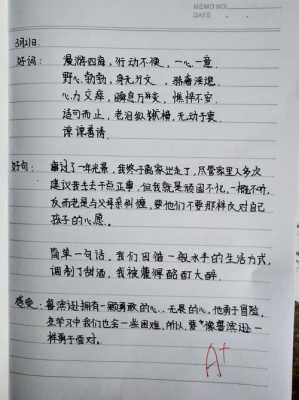 MEMO NO.
DATE
3月21日
好词： 漫游四海，行动不便，一心一意
野心勃勃，身无分文
心力交瘁，瞬息万变，惴惴不安
适可而止，老泪纵横，无动于衷
谆谆善诱
好句： 离过了一年光景，我终于离家出走了，尽管家里人多次
建议我去去干点正事，但我就是顽固不化，一概不听，
反而老是与父母亲纠缠，要他们不要那样反对自己
孩子的心愿。
简单一句话，我们因循一般水手的生活方式，
调制了甜酒，我被灌得酩酊大醉
感受： 鲁滨逊拥有一颗勇敢的心、无畏的心，他勇于冒险，
在学习中我们也会一些困难，所以，要像鲁滨逊一
样勇于面对。
A+